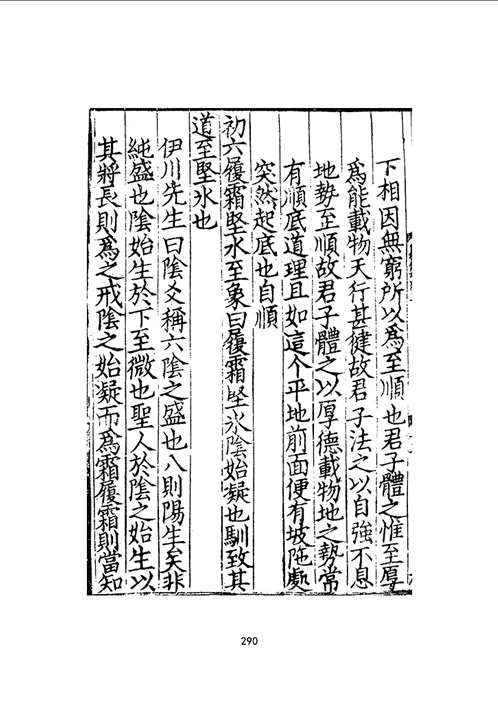 下相因無窮所以爲至順也君子體之惟至厚
爲能載物天行甚健故君子法之以自強不息
地勢至順故君子體之以厚德載物地之勢常
有順底道理且如這个平地前面便有坡陁處
突然起底也自順
初六履霜堅冰至象曰履霜堅氷陰始凝也馴致其
道至堅冰也
伊川先生曰陰爻稱六陰之盛也八則陽生矣非
純盛也陰始生於下至微也聖人於陰之始生以
其將長則爲之戒陰之始凝而爲霜履霜則當知
290